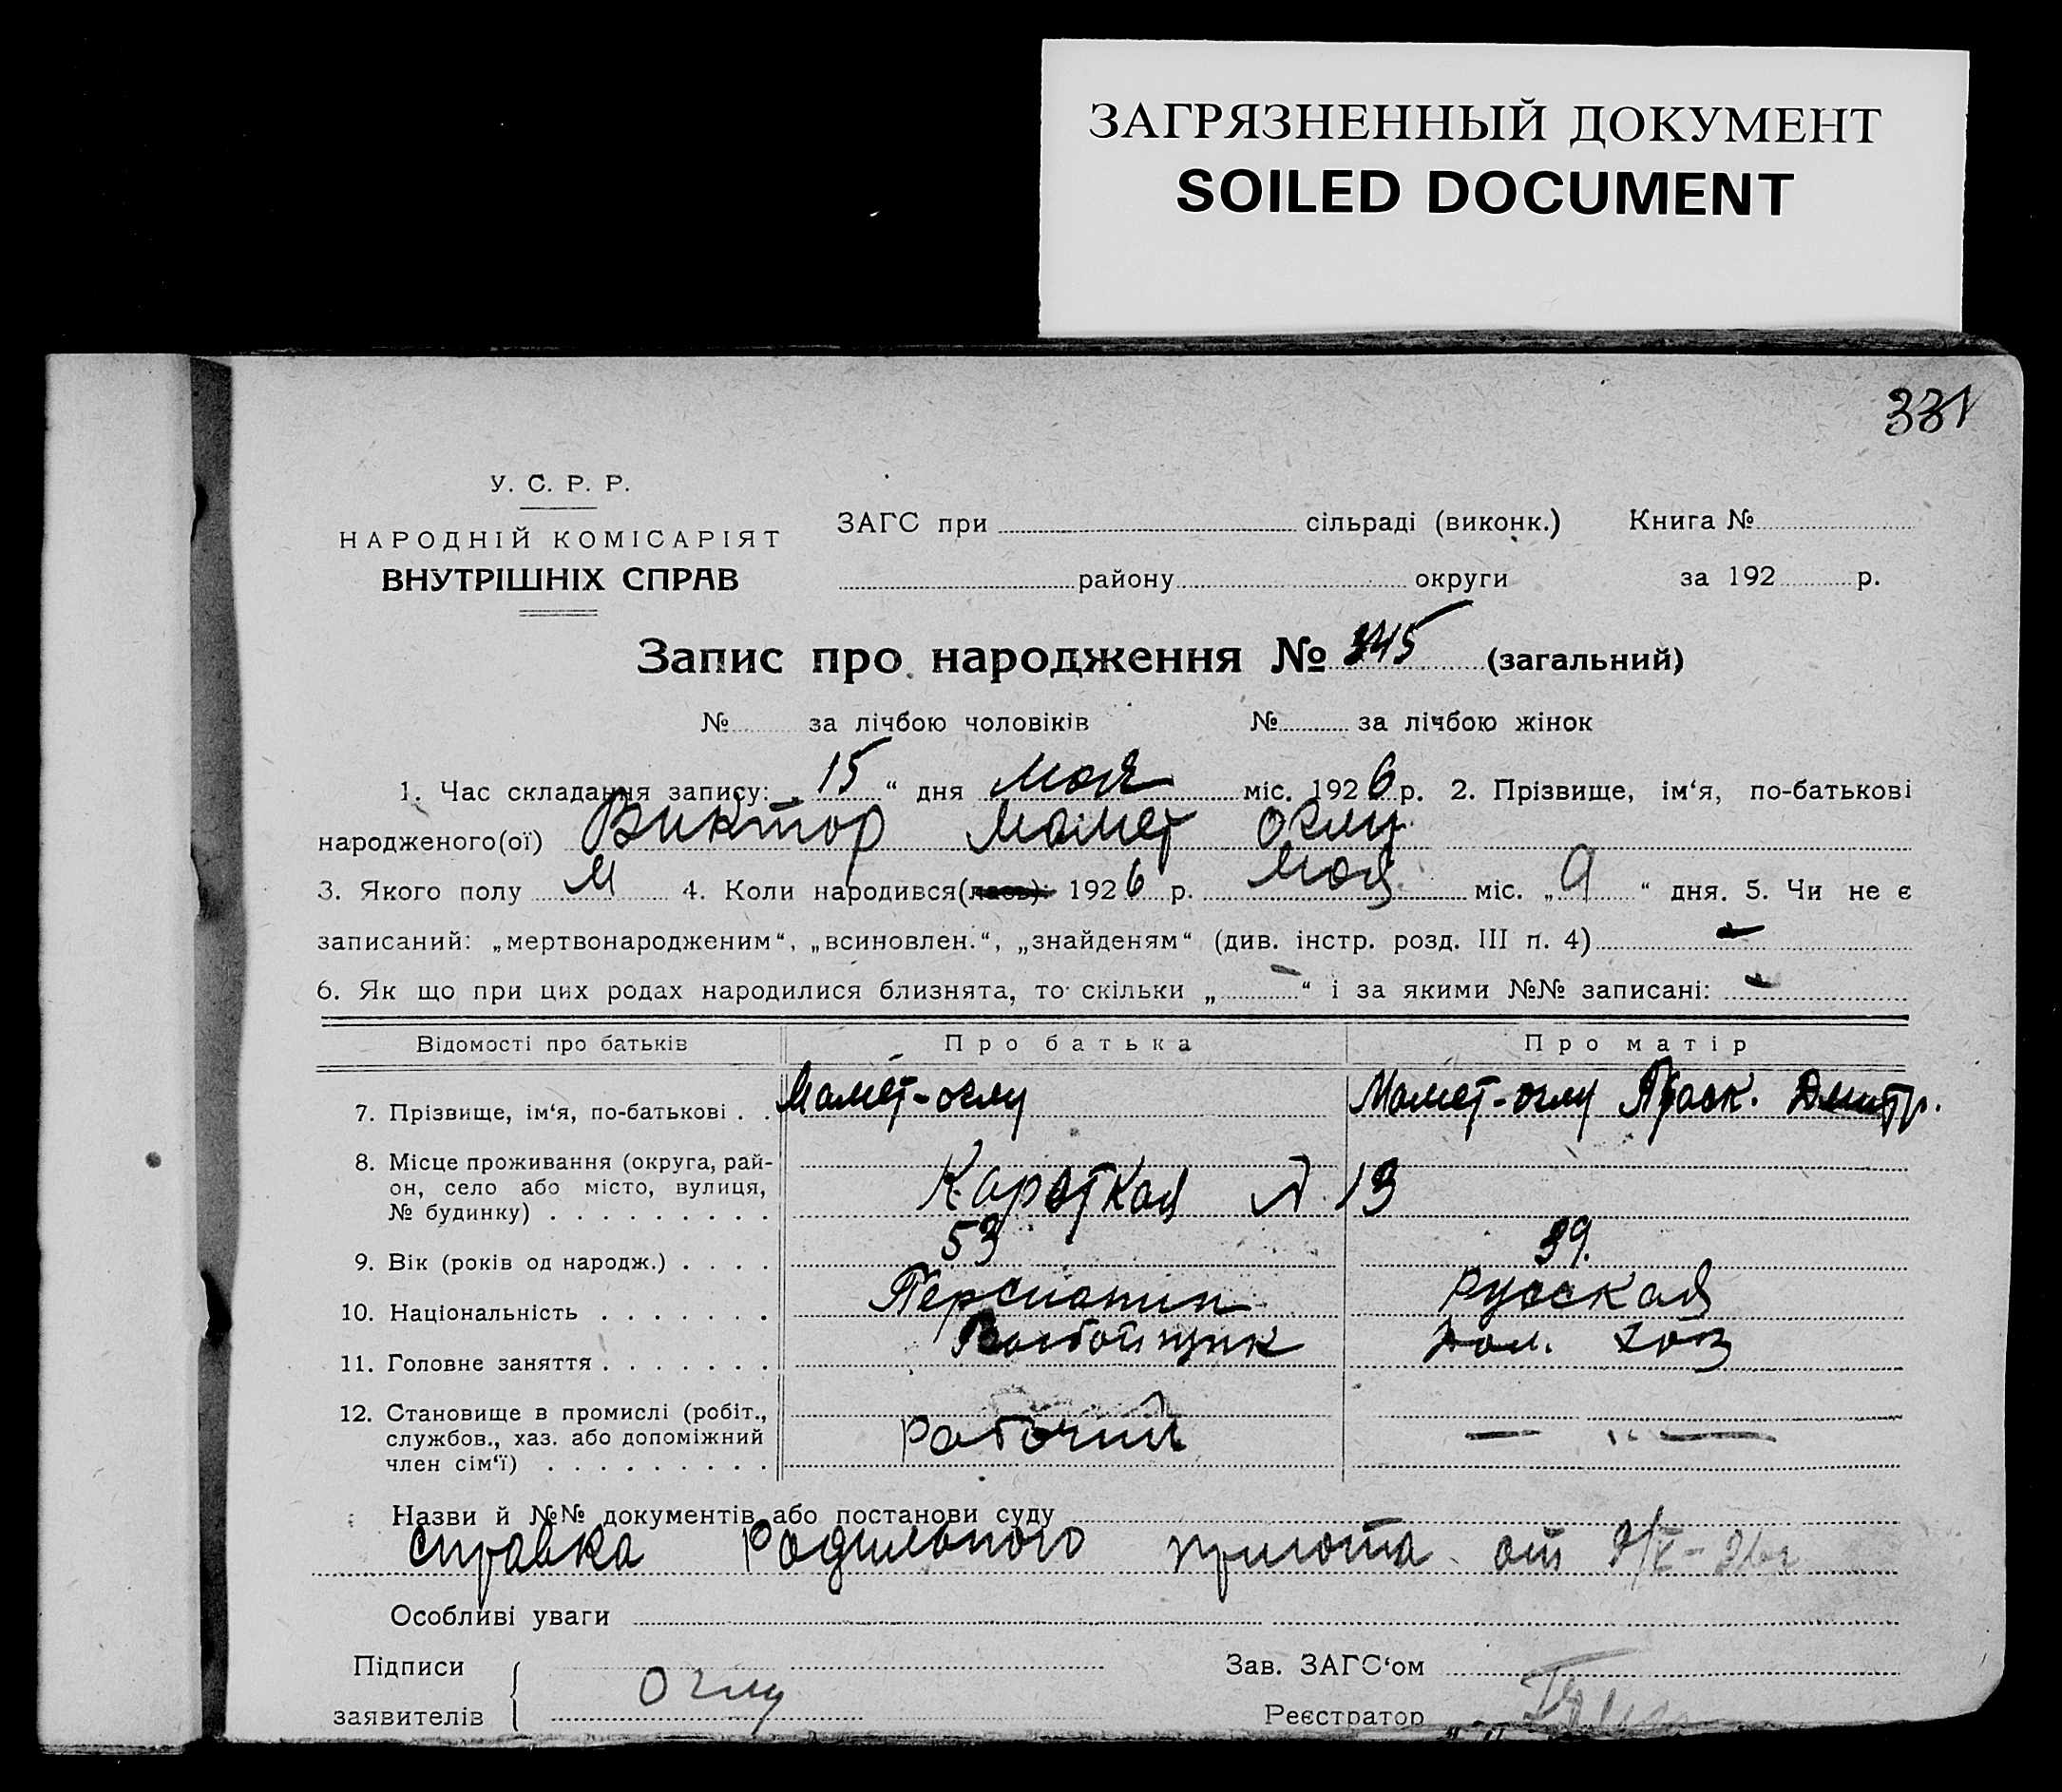 ЗАГРЯЗНЕННЫЙ ДОКУМЕНТ
SOILED DOCUMENT
331
У. С. Р. Р.
НАРОДНІЙ КОМІСАРІЯТ
ВНУТРІШНІХ СПРАВ
ЗАГС при сільраді (виконк.) Книга №
району округи за 192 р.
Запис про народження № 345 (загальний)
№ за лічбою чоловіків № за лічбою жінок
1. Час складання запису: „ 15 “ дня мая міс. 1926 р. 2. Прізвище, ім‘я, по-батькові
народженого(ої) Виктор Мамет Оглы
3. Якого полу М 4. Коли народився(лась) 1926 р. мая міс. „9“ дня. 5. Чи не є
записаний: „мертвонародженим“, „всиновлен.“, „знайденям“ (див. інстр. розд. III п. 4) –
6. Як що при цих родах народилися близнята, то скільки „ – “ і за якими №№ записані: –
Відомості про батьків Про батька Про матір
7. Прізвище, ім‘я, по-батькові . . Мамет-оглу Мамет-оглу Праск. Дмитр.
8. Місце проживання (округа, рай-
он, село або місто, вулиця,
№ будинку) . . . . . . . . . Кароткая д. 13
9. Вік (років од народж.) . . . . 53 39.
10. Національність . . . . . . . Персианин русская
11. Головне заняття . . . . . . . дом. хоз
12. Становище в промислі (робіт.,
службов., хаз. або допоміжний
член сім‘ї) . . . . . . . . . рабочий — „ —
Назви й №№ документів або постанови суду
справка Родильного приюта от
Особливі уваги
Підписи Зав. ЗАГС‘ом
Оглу
заявителів Реєстратор